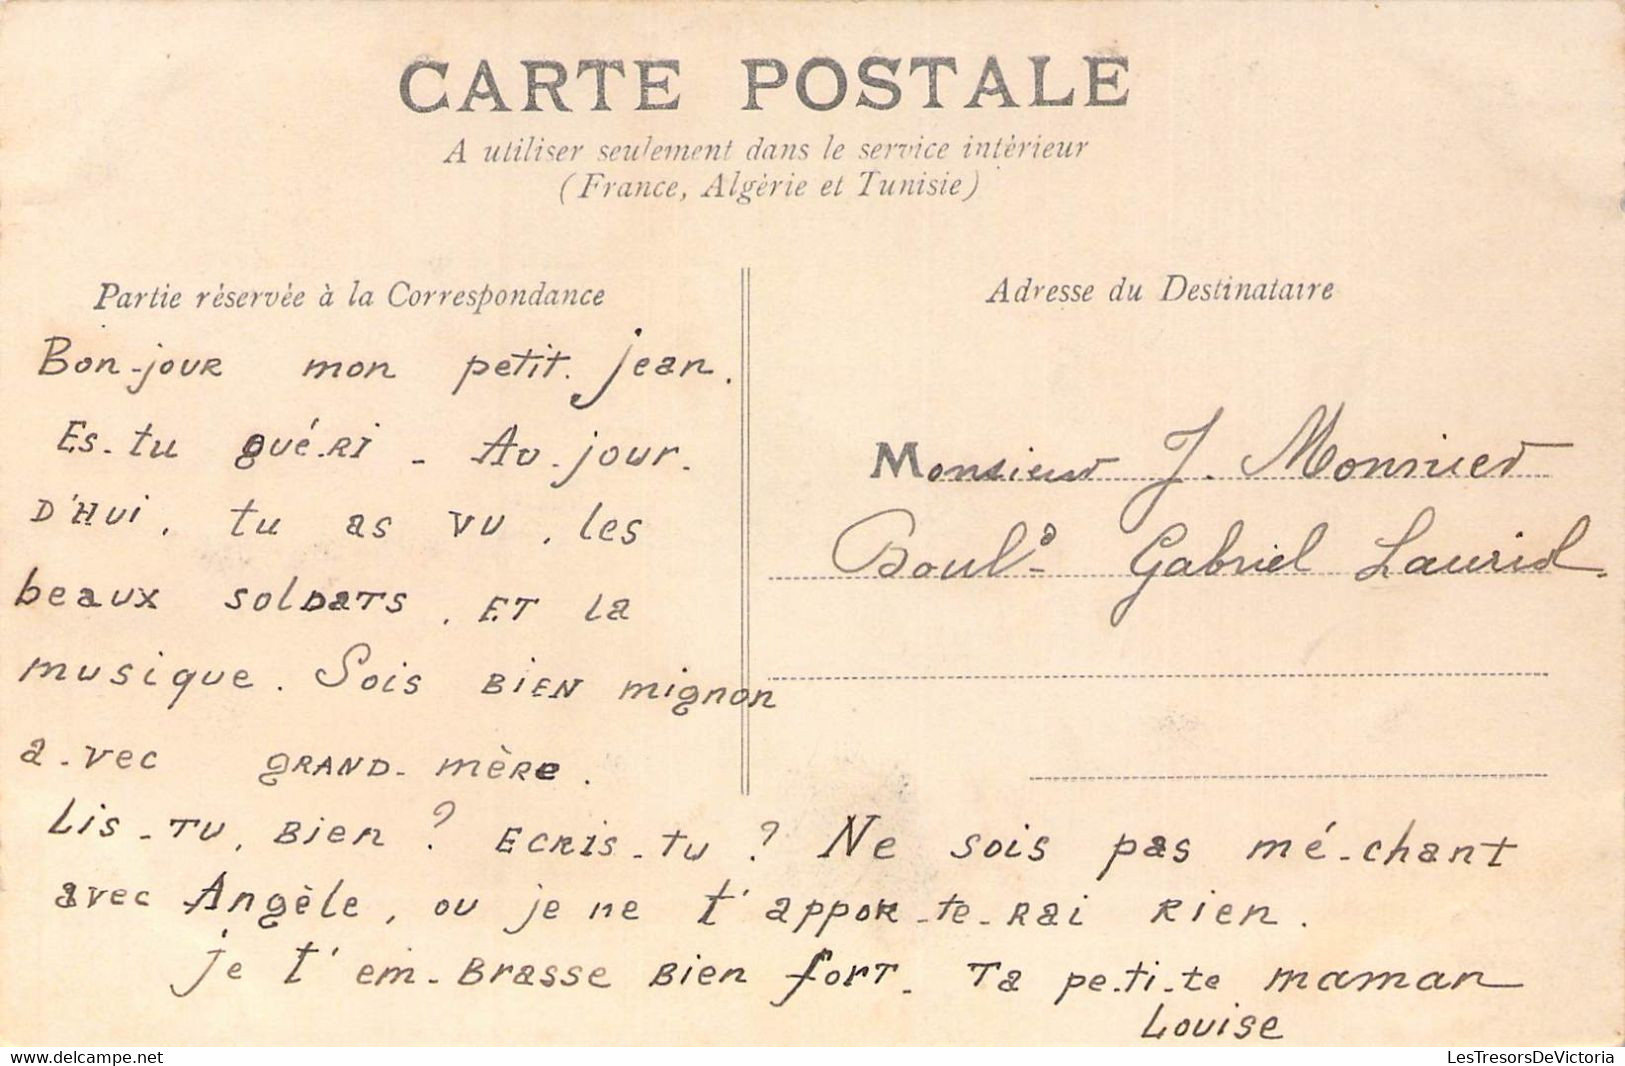 CARTE POSTALE
A utiliser seulement dans le service intérieur
(France, Algérie et Tunisie)
Partie réservée à la Correspondance
Bon-jour mon petit. jean.
Es-tu gué-ri - Au-jour-
D'Hui, tu as vu, les
beaux soldats, et la
musique. Sois bien mignon
a-vec grand-mère.
Lis-tu, bien ? Ecris-tu ? Ne sois pas mé-chant
avec Angèle, ou je ne t'appor-te-rai rien.
je t'em-brasse bien fort. Ta pe-ti-te maman
Louise
Adresse du Destinataire
Monsieur J. Monnier
Boulᵈ Gabriel Lauriol.
LesTresorsDeVictoria